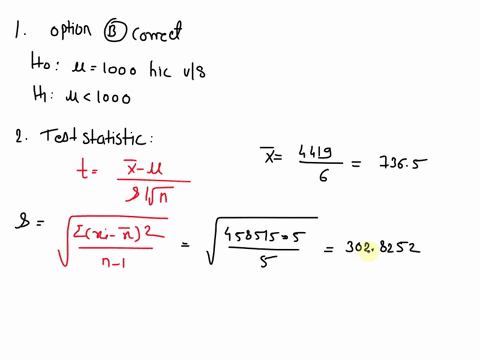 1. option Ⓑ correct
H₀: μ = 1000 hic v/s
H₁: μ < 1000
2. Test statistic:
t = x̄-μ / s/√n
x̄ = 4419/6 = 736.5
S = √(Σ(xi-x̄)²/n-1) = √(458515.5/5) = 302.8252